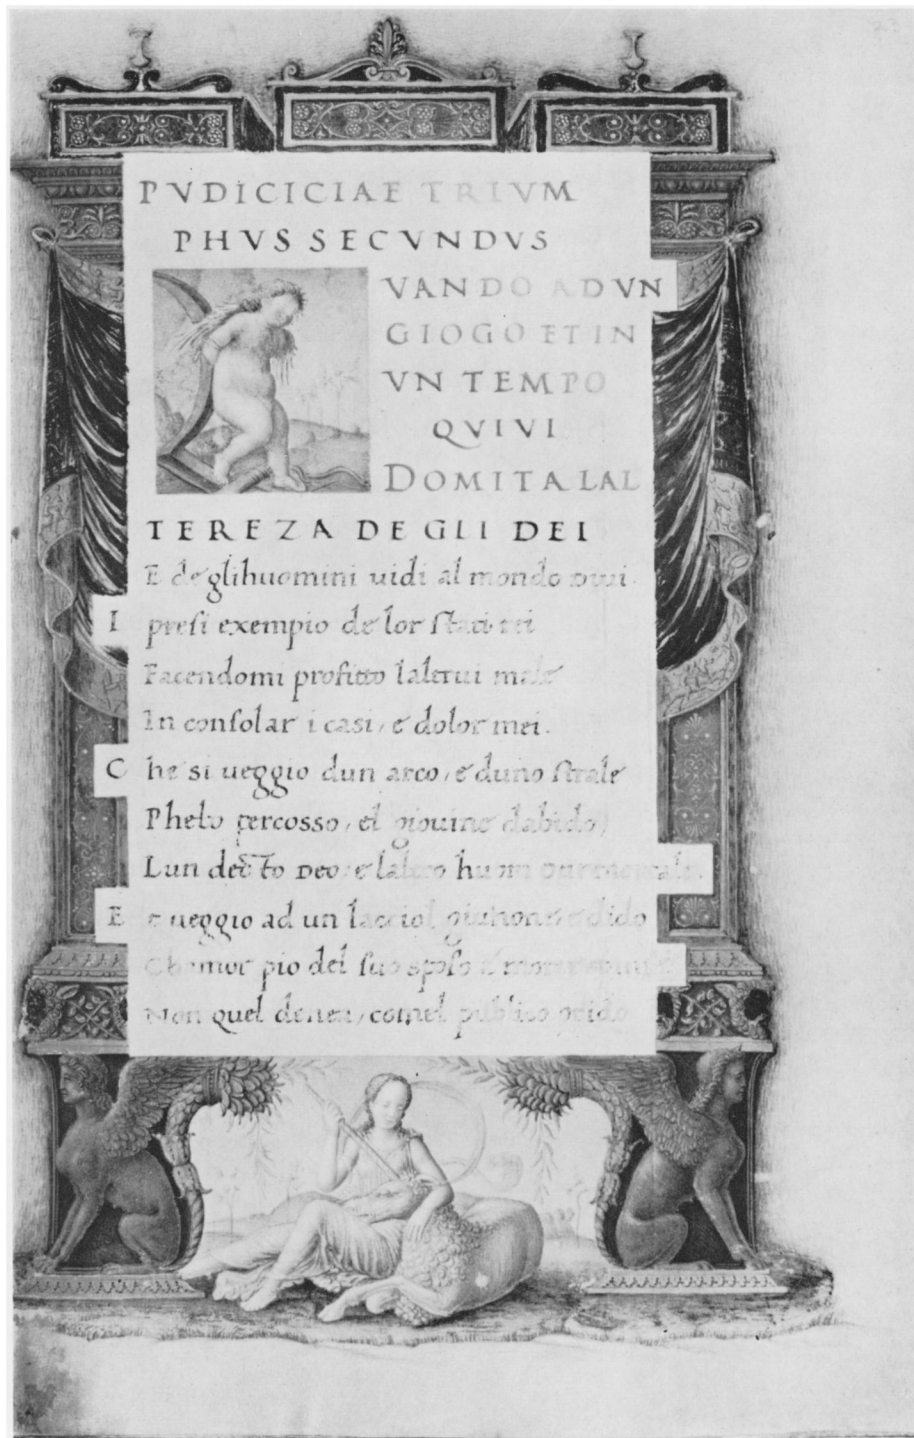 23
PVDICICIAE TRIVM
PHVS SECVNDVS
VANDO AD VN
GIOGO ET IN
VN TEMPO
QVIVI
DOMITA LAL
TEREZA DE GLI DEI
E de glihuomini uidi al mondo diui
I presi exempio de lor stati rei
Facendomi profitto laltrui male
In consolar i casi, e dolor mei.
C he si ueggio dun arco, e duno strale
Phebo percosso, el giouine dabido,
Lun detto Deo, e laltro huom pur mortale.
E e ueggio ad un lacciol giunone e dido
Chamor pio del suo sposo a morte
Non quel denea, comel publico grido